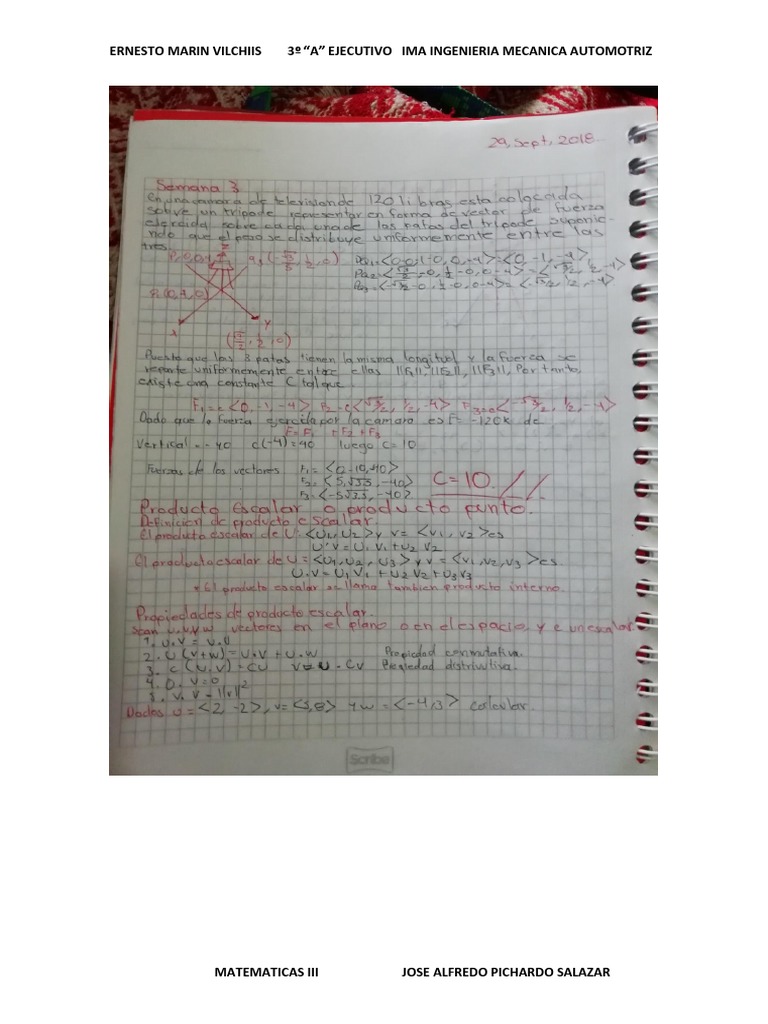 ERNESTO MARIN VILCHIIS 3º “A” EJECUTIVO IMA INGENIERIA MECANICA AUTOMOTRIZ
29, Sept, 2018
Semana 3
En una camara de television de 120 libras esta colocada
sobre un tripode representar en forma de vector de fuerza
ejercida sobre cada una de las patas del tripode suponie-
ndo que el peso se distribuye uniformemente entre las
tres.
Z
y
x
(√3/2, 1/2, 0)
Puesto que las 3 patas tienen la misma longitud y la fuerza se
reparte uniformemente entre ellas ||F1||, ||F2||, ||F3||, Por tanto,
existe una constante C tal que.
F1=c<0, -1, -4>, F2=c<√3/2, 1/2, -4> F3=c<-√3/2, 1/2, -4>
Dado que la fuerza ejercida por la camara es F= -120k de
F=F1 +F2+F3
Vertical = -40 c(-4)=40 luego C=10
Fuerzas de los vectores F1= <0-10,40>
F2= <5,√35, -40>
C=10.//
Producto Escalar o producto punto.
Definicion de producto escalar.
El produto escalar de U <U1, U2> y v= <v1, v2> es
U·V=U1V1+U2 V2
El producto escalar de U=<U1, U2, U3> y v=<v1,v2,v3> es.
U.V=U1V1+U2V2+U3V3
* El producto escalar se llama tambien producto interno.
Propiedades de producto escalar.
Sean u.v.y.w vectores en el plano o en el espacio y e un escalar
1. U.V= V.U
2. U (V+W)=U.V+U.W Propiedad conmutativa.
3. C(U.V)=CU V=U.CV Propiedad distributiva.
4. O.V=0
5. V.V=||V||2
Dados U=<2,-2>, v=<5,8> y w=<-4,3> calcular.
Scribe
MATEMATICAS III JOSE ALFREDO PICHARDO SALAZAR